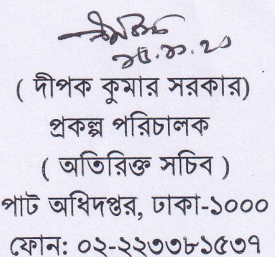 ১৫.১১.২০
( দীপক কুমার সরকার)
প্রকল্প পরিচালক
( অতিরিক্ত সচিব )
পাট অধিদপ্তর, ঢাকা-১০০০
ফোন: ০২-২২৩৩৮১৫৩৭